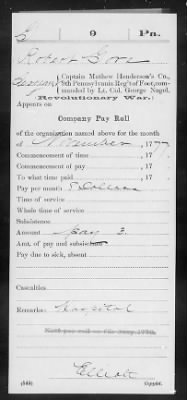 G 9 Pn.
Robert Gore
Sergeant, Captain Mathew Henderson's Co.,
9th Pennsylvania Reg't of Foot, commanded by Lt. Col. George Nagel.
Revolutionary War.
Appears on
Company Pay Roll
of the organization named above for the month
of November, 1777.
Commencement of time , 17
Commencement of pay , 17
To what time paid , 17
Pay per month 8 Dollars
Time of service
Whole time of service
Subsistence
Amount
Amt. of pay and subsistence
Pay due to sick, absent
Casualties
Remarks: Hospital
Elliott
Copyist.